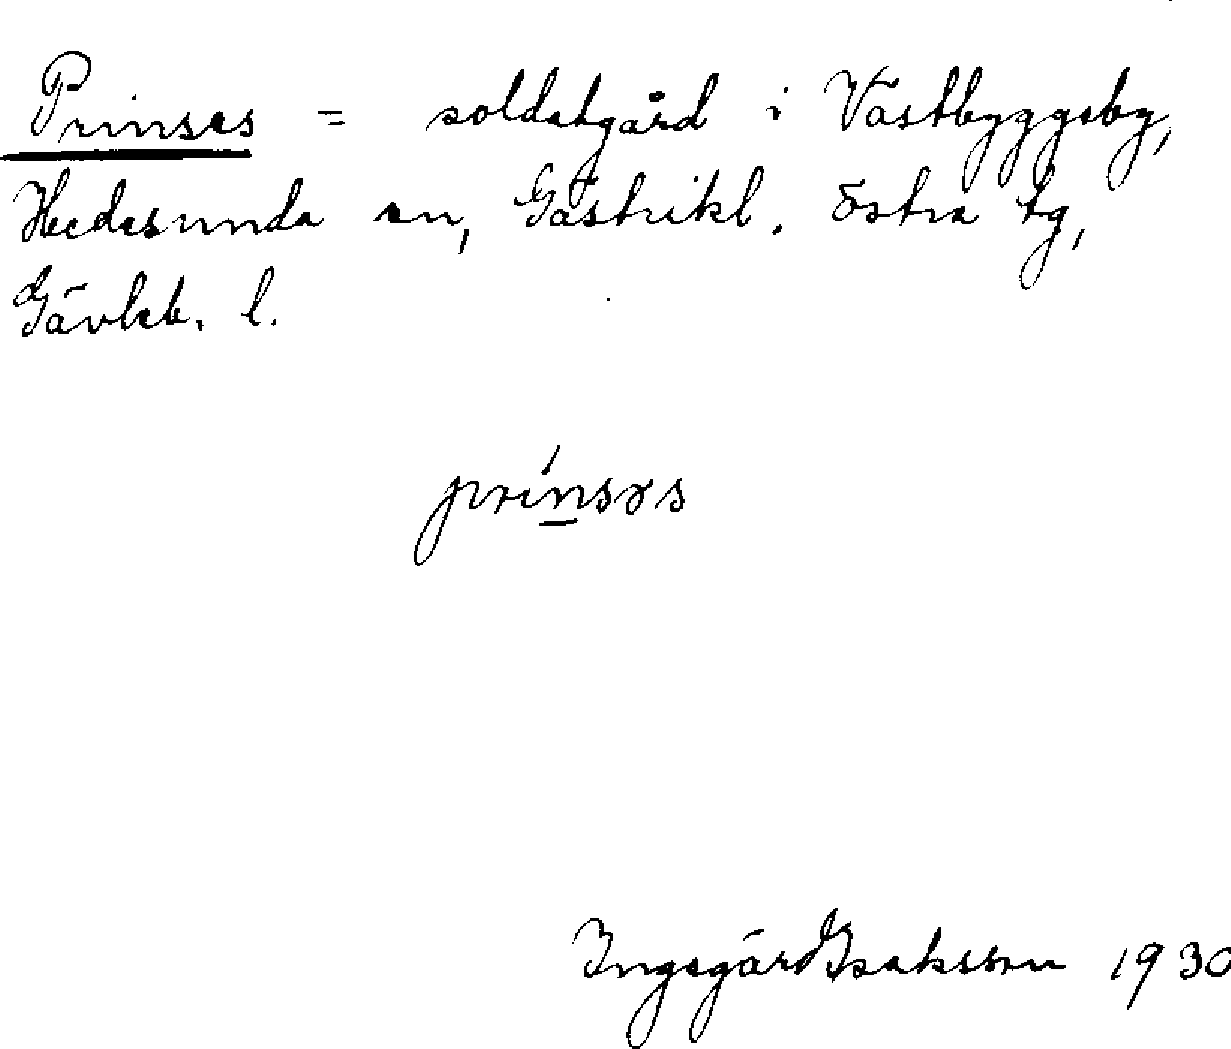 Prinses = soldatgård i Västbyggeby,
Hedesunda sn, Gästrikl. östra tg,
Gävleb. l.
prínsəs
Ingegärd Isaksson 1930